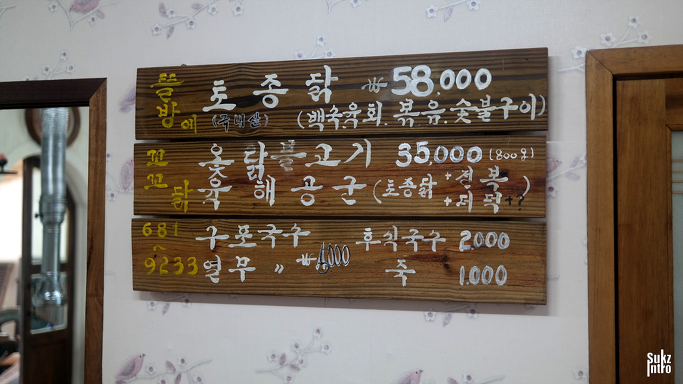 뜰방에
토종닭 ₩58,000
(국내산) (백숙.육회.볶음.숯불구이)
꼬꼬닭
옻닭불고기 35,000 (800g)
육해공군 (토종닭+전복+더덕+?)
681-9233
구포국수 후식국수 2000
열무 〃 ₩4,000 죽 1.000
Sukz
Intro